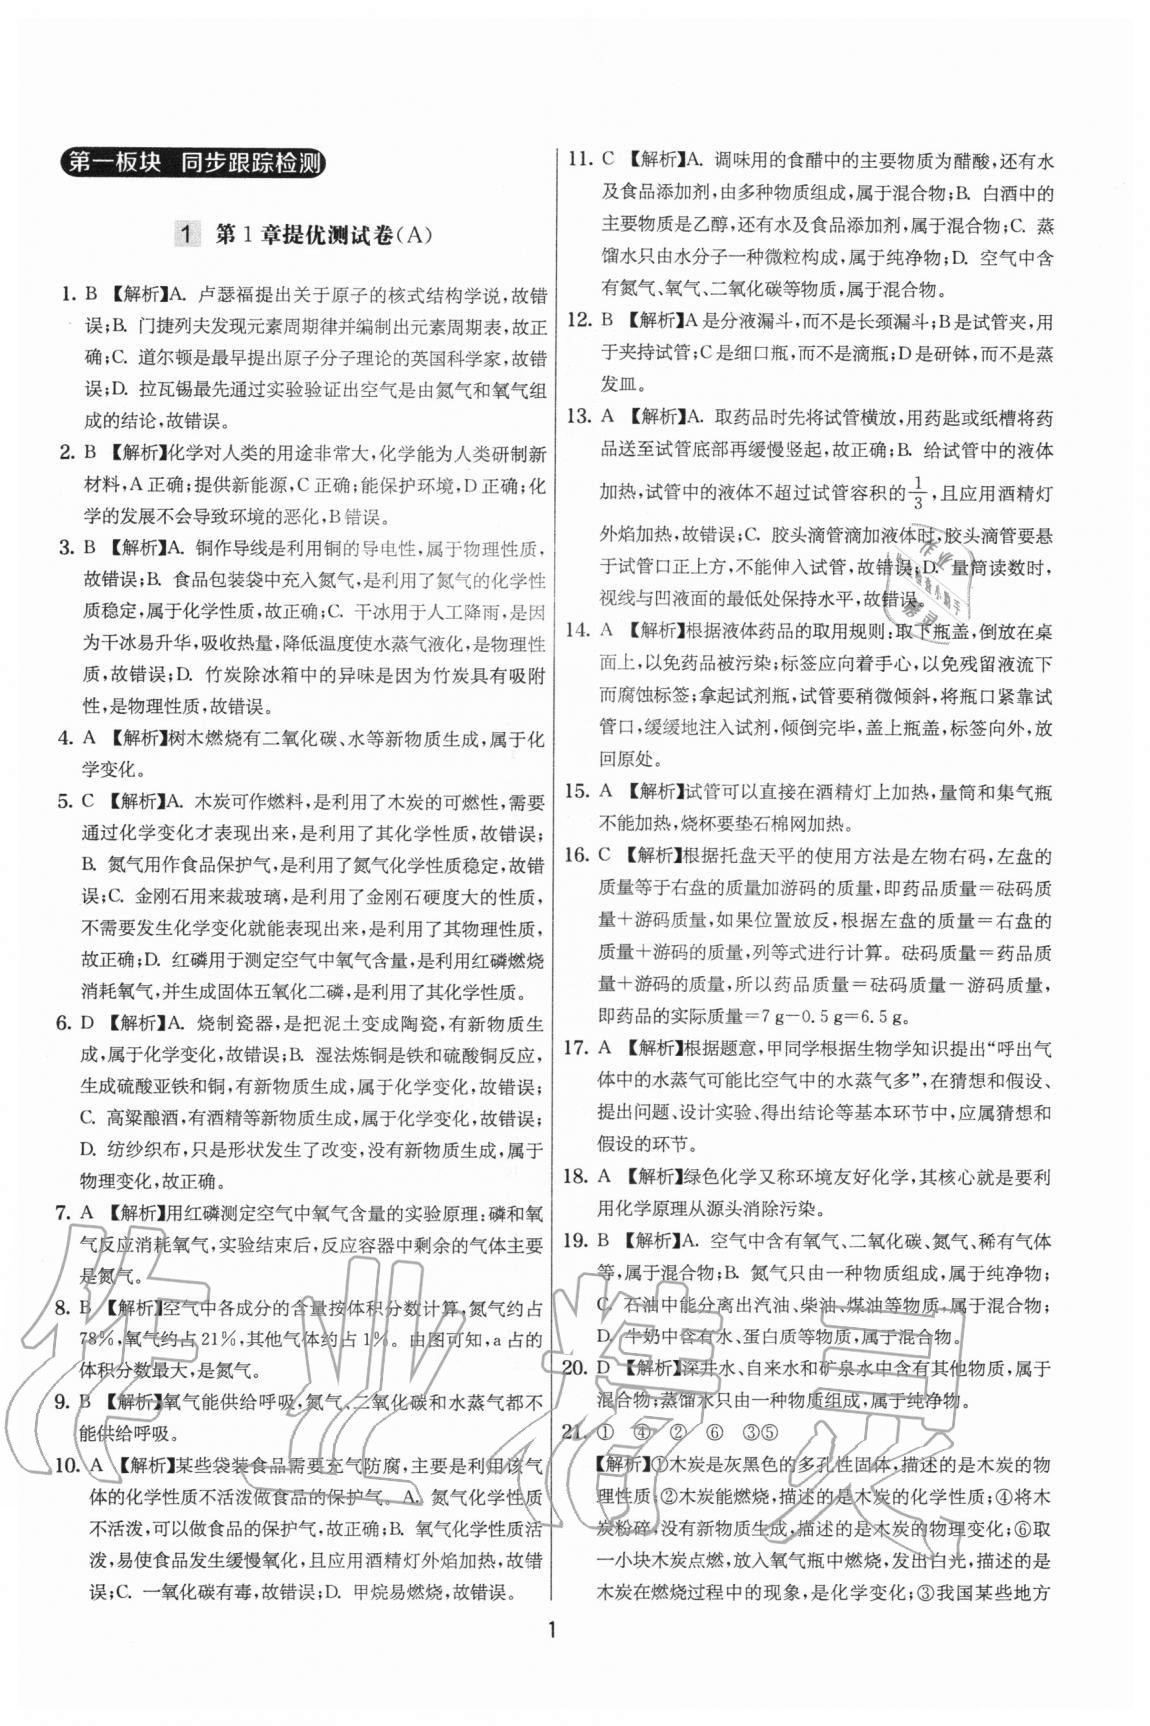 第一板块 同步跟踪检测
1 第1章提优测试卷(A)
1. B 【解析】A. 卢瑟福提出关于原子的核式结构学说,故错
误;B. 门捷列夫发现元素周期律并编制出元素周期表,故正
确;C. 道尔顿是最早提出原子分子理论的英国科学家,故错
误;D. 拉瓦锡最先通过实验验证出空气是由氮气和氧气组
成的结论,故错误。
2. B 【解析】化学对人类的用途非常大,化学能为人类研制新
材料,A正确;提供新能源,C正确;能保护环境,D正确;化
学的发展不会导致环境的恶化,B错误。
3. B 【解析】A. 铜作导线是利用铜的导电性,属于物理性质,
故错误;B. 食品包装袋中充入氮气,是利用了氮气的化学性
质稳定,属于化学性质,故正确;C. 干冰用于人工降雨,是因
为干冰易升华,吸收热量,降低温度使水蒸气液化,是物理性
质,故错误;D. 竹炭除冰箱中的异味是因为竹炭具有吸附
性,是物理性质,故错误。
4. A 【解析】树木燃烧有二氧化碳、水等新物质生成,属于化
学变化。
5. C 【解析】A. 木炭可作燃料,是利用了木炭的可燃性,需要
通过化学变化才表现出来,是利用了其化学性质,故错误;
B. 氮气用作食品保护气,是利用了氮气化学性质稳定,故错
误;C. 金刚石用来裁玻璃,是利用了金刚石硬度大的性质,
不需要发生化学变化就能表现出来,是利用了其物理性质,
故正确;D. 红磷用于测定空气中氧气含量,是利用红磷燃烧
消耗氧气,并生成固体五氧化二磷,是利用了其化学性质。
6. D 【解析】A. 烧制瓷器,是把泥土变成陶瓷,有新物质生
成,属于化学变化,故错误;B. 湿法炼铜是铁和硫酸铜反应,
生成硫酸亚铁和铜,有新物质生成,属于化学变化,故错误;
C. 高粱酿酒,有酒精等新物质生成,属于化学变化,故错误;
D. 纺纱织布,只是形状发生了改变,没有新物质生成,属于
物理变化,故正确。
7. A 【解析】用红磷测定空气中氧气含量的实验原理:磷和氧
气反应消耗氧气,实验结束后,反应容器中剩余的气体主要
是氮气。
8. B 【解析】空气中各成分的含量按体积分数计算,氮气约占
78%,氧气约占21%,其他气体约占1%。由图可知,a占的
体积分数最大,是氮气。
9. B 【解析】氧气能供给呼吸,氮气、二氧化碳和水蒸气都不
能供给呼吸。
10. A 【解析】某些袋装食品需要充气防腐,主要是利用该气
体的化学性质不活泼做食品的保护气。A. 氮气化学性质
不活泼,可以做食品的保护气,故正确;B. 氧气化学性质活
泼,易使食品发生缓慢氧化,且应用酒精灯外焰加热,故错
误;C. 一氧化碳有毒,故错误;D. 甲烷易燃烧,故错误。
11. C 【解析】A. 调味用的食醋中的主要物质为醋酸,还有水
及食品添加剂,由多种物质组成,属于混合物;B. 白酒中的
主要物质是乙醇,还有水及食品添加剂,属于混合物;C. 蒸
馏水只由水分子一种微粒构成,属于纯净物;D. 空气中含
有氮气、氧气、二氧化碳等物质,属于混合物。
12. B 【解析】A是分液漏斗,而不是长颈漏斗;B是试管夹,用
于夹持试管;C是细口瓶,而不是滴瓶;D是研钵,而不是蒸
发皿。
13. A 【解析】A. 取药品时先将试管横放,用药匙或纸槽将药
品送至试管底部再缓慢竖起,故正确;B. 给试管中的液体
加热,试管中的液体不超过试管容积的1/3,且应用酒精灯
外焰加热,故错误;C. 胶头滴管滴加液体时,胶头滴管要悬
于试管口正上方,不能伸入试管,故错误;D. 量筒读数时,
视线与凹液面的最低处保持水平,故错误。
14. A 【解析】根据液体药品的取用规则:取下瓶盖,倒放在桌
面上,以免药品被污染;标签应向着手心,以免残留液流下
而腐蚀标签;拿起试剂瓶,试管要稍微倾斜,将瓶口紧靠试
管口,缓缓地注入试剂,倾倒完毕,盖上瓶盖,标签向外,放
回原处。
15. A 【解析】试管可以直接在酒精灯上加热,量筒和集气瓶
不能加热,烧杯要垫石棉网加热。
16. C 【解析】根据托盘天平的使用方法是左物右码,左盘的
质量等于右盘的质量加游码的质量,即药品质量=砝码质
量+游码质量,如果位置放反,根据左盘的质量=右盘的
质量+游码的质量,列等式进行计算。砝码质量=药品质
量+游码质量,所以药品质量=砝码质量-游码质量,
即药品的实际质量=7 g-0.5 g=6.5 g。
17. A 【解析】根据题意,甲同学根据生物学知识提出“呼出气
体中的水蒸气可能比空气中的水蒸气多”,在猜想和假设、
提出问题、设计实验、得出结论等基本环节中,应属猜想和
假设的环节。
18. A 【解析】绿色化学又称环境友好化学,其核心就是要利
用化学原理从源头消除污染。
19. B 【解析】A. 空气中含有氧气、二氧化碳、氮气、稀有气体
等,属于混合物;B. 氮气只由一种物质组成,属于纯净物;
C. 石油中能分离出汽油、柴油、煤油等物质,属于混合物;
D. 牛奶中含有水、蛋白质等物质,属于混合物。
20. D 【解析】深井水、自来水和矿泉水中含有其他物质,属于
混合物;蒸馏水只由一种物质组成,属于纯净物。
21. ① ④ ② ⑥ ③⑤
【解析】①木炭是灰黑色的多孔性固体,描述的是木炭的物
理性质;②木炭能燃烧,描述的是木炭的化学性质;④将木
炭粉碎,没有新物质生成,描述的是木炭的物理变化;⑥取
一小块木炭点燃,放入氧气瓶中燃烧,发出白光,描述的是
木炭在燃烧过程中的现象,是化学变化;③我国某些地方
1
作业精灵